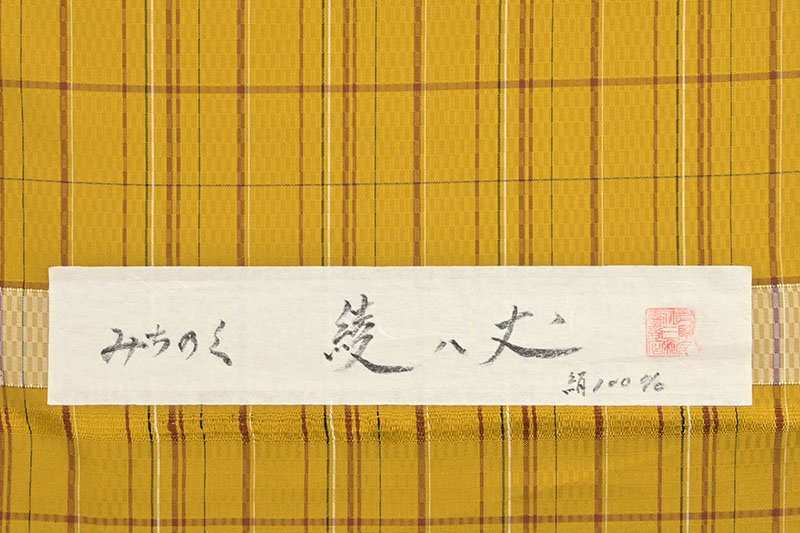 みちのく 綾八丈
絹100%